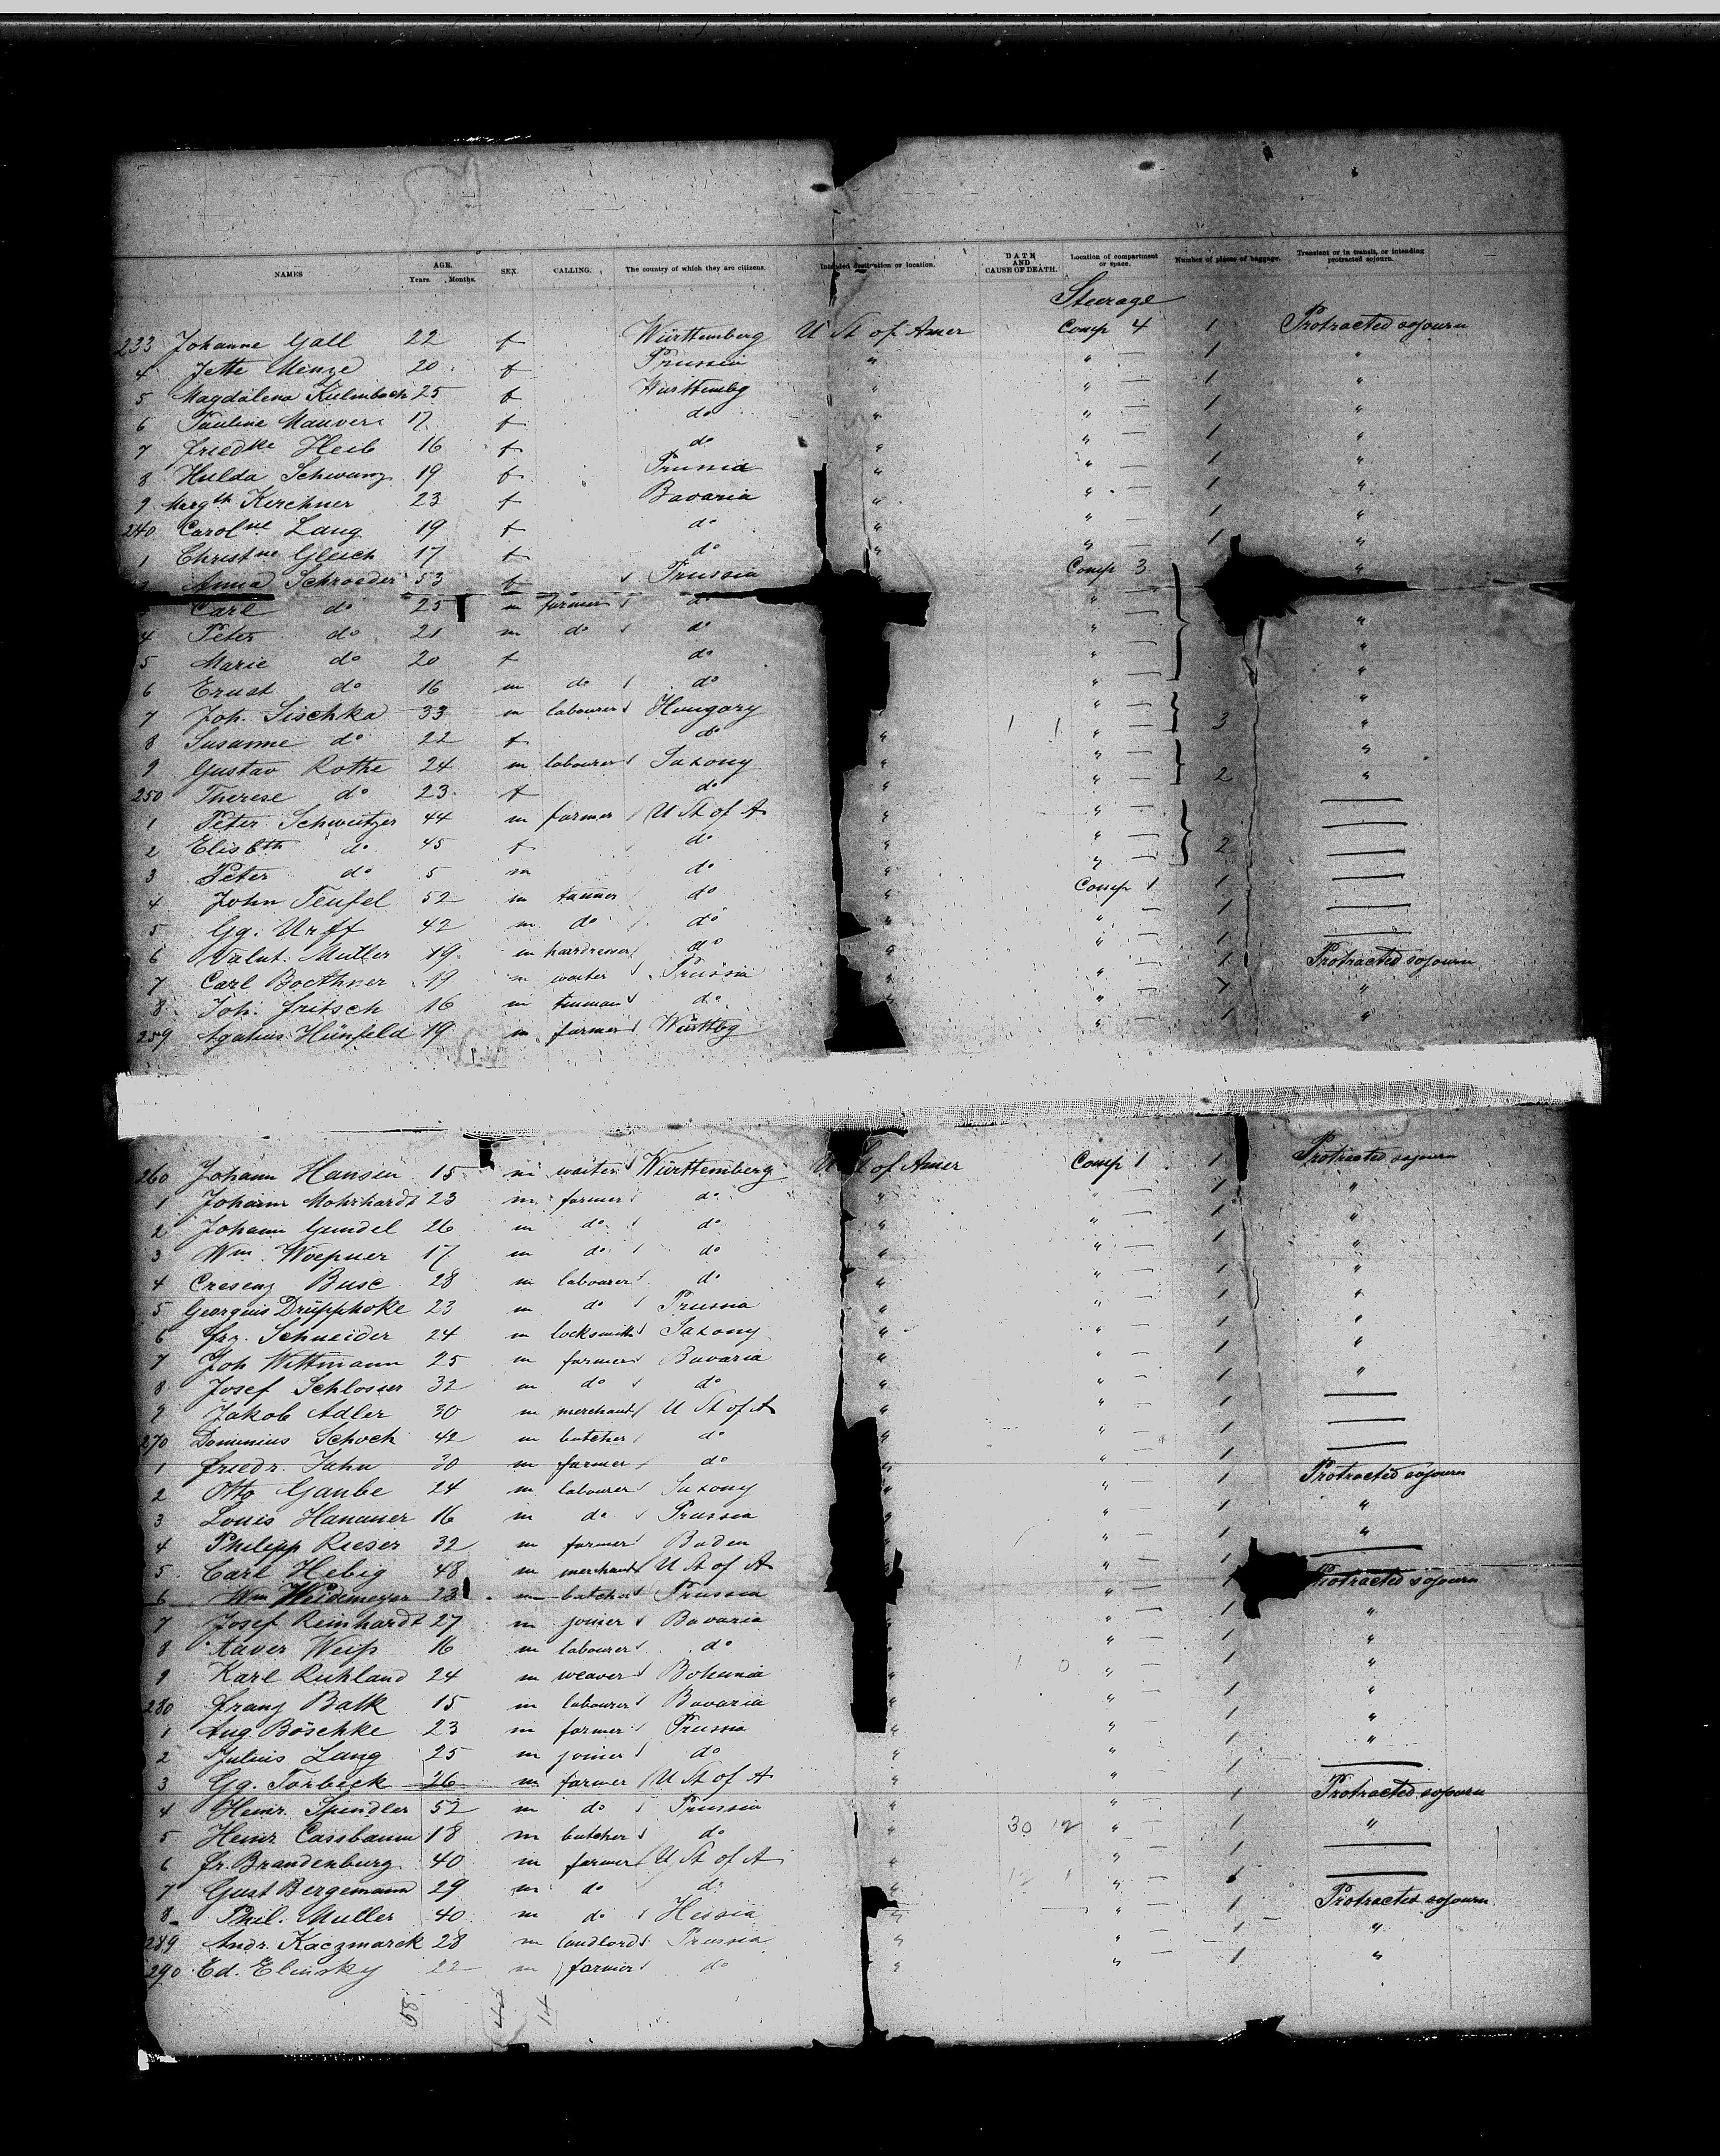 NAMES AGE. Years. Months. SEX. CALLING. The country of which they are citizens. Intended destination or location. DATE AND CAUSE OF DEATH. Location of compartment or space. Number of pieces of baggage. Transient or in transit, or intending protracted sojourn.
Steerage
233 Johanne Gall 22 f Württemberg U St of Amer Comp 4 1 Protracted sojourn
4 Jette Menze 20 f Prussia " " — 1 "
5 Magdalena Kulmbach 25 f Württembg " " — 1 "
6 Pauline Manver 17 f do " " — 1 "
7 Friedke Heib 16 f do " " — 1 "
8 Hulda Schwarz 19 f Prussia " " — 1 "
9 Margth Kirchner 23 f Bavaria " " — 1 "
240 Carolne Lang 19 f do " " — 1 "
1 Christne Gleich 17 f do " " — 1 "
Anna Schroeder 53 f Prussia " Comp 3 "
Carl do 25 m farmer do " —
4 Peter do 21 m do do " — "
5 Marie do 20 f do " — "
6 Ernst do 16 m do do " — "
7 Joh. Sischka 33 m labourer Hungary " — "
8 Susanne do 22 f do " 1 1 " — 3 "
9 Gustav Rothe 24 m labourer Saxony " " — "
250 Therese do 23 f do " " — 2 "
1 Peter Schweitzer 44 m farmer U St of A " " — ——
2 Elisbth do 45 f do " " — 2 ——
3 Peter do 5 m do " " — ——
4 John Teufel 52 m tanner do " Comp 1 1 ——
5 Gg. Urff 42 m do do " " — 1 ——
6 Valnt. Muller 19 m hairdresser do " " — 1 ——
7 Carl Boethner 19 m waiter Prussia " " — 1 Protracted sojourn
8 Joh. Fritsch 16 m tinman do " " — "
259 Agatius Hünfeld 19 m farmer Württbg " — 1 "
260 Johann Hansen 15 m waiter Württemberg U St of Amer Comp 1 1 Protracted sojourn
1 Johann Mohrhardt 23 m farmer do " " — 1 "
2 Johann Gundel 26 m do do " " — 1 "
3 Wm. Woepner 17 m do do " " — 1 "
4 Cresenz Buse 28 m labourer do " " — 1 "
5 Georguis Drüpphoke 23 m do Prussia " " — 1 "
6 Frz. Schneider 24 m locksmith Saxony " " — 1 "
7 Joh Wittmann 25 m farmer Bavaria " " — 1 "
8 Josef Schlosser 32 m do do " " — 1 "
9 Jakob Adler 30 m merchant U St of A " " — 1 ——
270 Dominius Schoch 42 m butcher do " " — 1 ——
1 Friedr. Jahn 30 m farmer do " " — 1 ——
2 Otto Gaube 24 m labourer Saxony " " — 1 Protracted sojourn
3 Louis Hanauer 16 m do Prussia " " — 1 "
4 Philipp Rieser 32 m farmer Baden " — 1 "
5 Carl Hebig 48 m merchant U St of A " — 1 ——
6 Wm Weidemeyer 23 m butcher Prussia " — 1 Protracted sojourn
7 Josef Reinhardt 27 m joiner Bavaria " — 1 "
8 Xaver Weiß 16 m labourer do " — 1 "
9 Karl Ruhland 24 m weaver Bohemia " 1 0 " — 1 "
280 Franz Balk 15 m labourer Bavaria " " — 1 "
1 Aug. Böschke 23 m farmer Prussia " " — 1 "
2 Julius Lang 25 m joiner do " " — 1 "
3 Gg. Torbeck 26 m farmer U St of A " " — 1 ——
4 Heinr. Spindler 52 m do Prussia " " — 1 Protracted sojourn
5 Heinr Cassbaum 18 m butcher do " 30 12 " — 1 "
6 Fr. Brandenburg 40 m farmer U St of A " " — 1 ——
7 Gust Bergemann 29 m do do " " — 1 ——
8 Phil. Muller 40 m do Hessia " " — 1 Protracted sojourn
289 Andr. Kaczmarek 28 m landlord Prussia " " — 1 "
290 Ed. Elinsky 22 m farmer do " " — 1 "
58 44 14